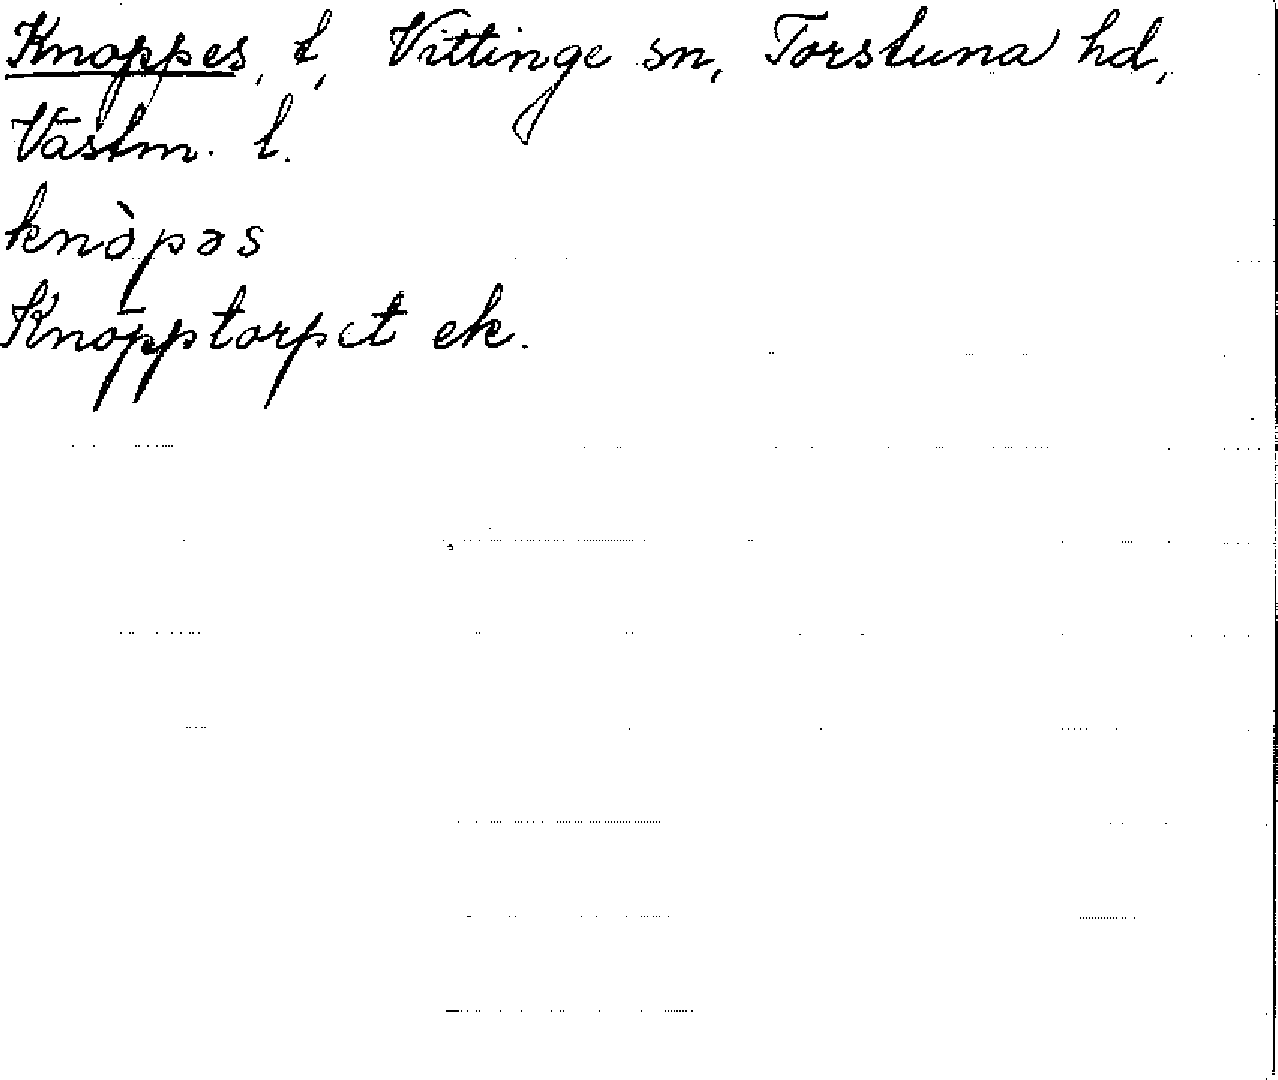 Knoppes, t, Vittinge sn, Torstuna hd,
Västm. l.
knòpəs
Knopptorpet ek.